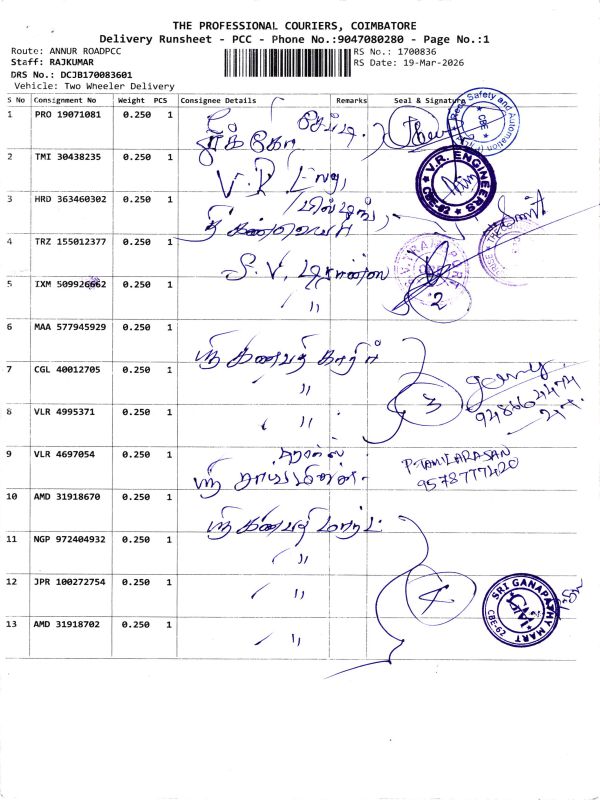 THE PROFESSIONAL COURIERS, COIMBATORE
Delivery Runsheet - PCC - Phone No.:9047080280 - Page No.:1
Route: ANNUR ROADPCC
RS No.: 1700836
Staff: RAJKUMAR
RS Date: 19-Mar-2026
DRS No.: DCJB170083601
Vehicle: Two Wheeler Delivery
S No Consignment No Weight PCS Consignee Details Remarks Seal & Signature
1 PRO 19071081 0.250 1
Safety and Automation CBE
2 TMI 30438235 0.250 1 V.R. Eng,
V.R. ENGINEERS
3 HRD 363460302 0.250 1
4 TRZ 155012377 0.250 1 S.V.
5 IXM 509926662 0.250 1 "
2
6 MAA 577945929 0.250 1 ஸ்ரீ கணபதி கார்ஸ்
7 CGL 40012705 0.250 1 "
3
8 VLR 4995371 0.250 1 "
9 VLR 4697054 0.250 1
P. TAMILARASAN
9578777420
10 AMD 31918670 0.250 1 ஸ்ரீ கணபதி மார்ட்
11 NGP 972404932 0.250 1 "
12 JPR 100272754 0.250 1 "
4
SRI GANAPATHY MART CBE-62
13 AMD 31918702 0.250 1 "